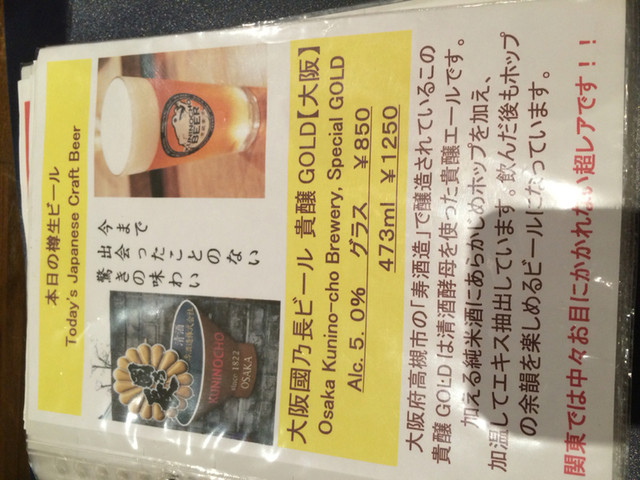 本日の樽生ビール
Today's Japanese Craft Beer
BEER
今まで
出会ったことのない
驚きの味わい
清酒
KUNINOCHO
SINCE 1822
OSAKA
大阪國乃長ビール 貴醸 GOLD【大阪】
Osaka Kunino-cho Brewery, Special GOLD
Alc. 5. 0% グラス ¥850
473ml ¥1250
大阪府高槻市の「寿酒造」で醸造されているこの
貴醸 GOLD は清酒酵母を使った貴醸エールです。
加える純米酒にあらかじめホップを加え、
加温してエキス抽出しています。飲んだ後もホップ
の余韻を楽しめるビールになっています。
関東では中々お目にかかれない超レアです!!